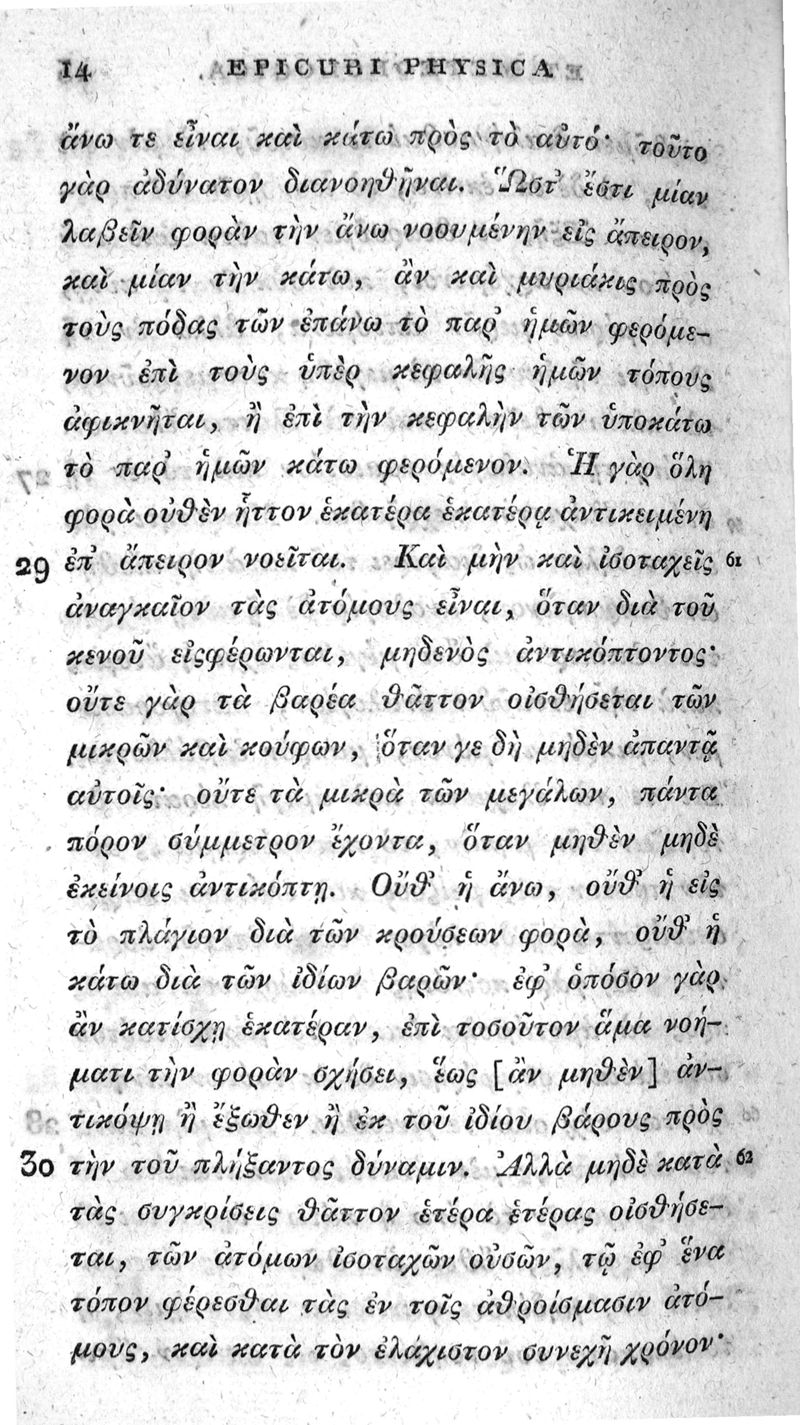 14 EPICURI PHYSICA
ἄνω τε εἶναι καὶ κάτω πρὸς τὸ αὐτό· τοῦτο
γὰρ ἀδύνατον διανοηθῆναι. Ὥστ᾽ ἔστι μίαν
λαβεῖν φορὰν τὴν ἄνω νοουμένην εἰς ἄπειρον,
καὶ μίαν τὴν κάτω, ἂν καὶ μυριάκις πρὸς
τοὺς πόδας τῶν ἐπάνω τὸ παρ᾽ ἡμῶν φερόμε-
νον ἐπὶ τοὺς ὑπὲρ κεφαλῆς ἡμῶν τόπους
ἀφικνῆται, ἢ ἐπὶ τὴν κεφαλὴν τῶν ὑποκάτω
τὸ παρ᾽ ἡμῶν κάτω φερόμενον. Ἡ γὰρ ὅλη
φορὰ οὐθὲν ἧττον ἑκατέρα ἑκατέρᾳ ἀντικειμένη
29 ἐπ᾽ ἄπειρον νοεῖται. Καὶ μὴν καὶ ἰσοταχεῖς 61
ἀναγκαῖον τὰς ἀτόμους εἶναι, ὅταν διὰ τοῦ
κενοῦ εἰςφέρωνται, μηδενὸς ἀντικόπτοντος·
οὔτε γὰρ τὰ βαρέα θᾶττον οἰσθήσεται τῶν
μικρῶν καὶ κούφων, ὅταν γε δὴ μηδὲν ἀπαντᾷ
αὐτοῖς· οὔτε τὰ μικρὰ τῶν μεγάλων, πάντα
πόρον σύμμετρον ἔχοντα, ὅταν μηθὲν μηδὲ
ἐκείνοις ἀντικόπτῃ. Οὔθ᾽ ἡ ἄνω, οὔθ᾽ ἡ εἰς
τὸ πλάγιον διὰ τῶν κρούσεων φορὰ, οὔθ᾽ ἡ
κάτω διὰ τῶν ἰδίων βαρῶν· ἐφ᾽ ὁπόσον γὰρ
ἂν κατίσχῃ ἑκατέραν, ἐπὶ τοσοῦτον ἅμα νοή-
ματι τὴν φορὰν σχήσει, ἕως [ἂν μηθὲν] ἀν-
τικόψῃ ἢ ἔξωθεν ἢ ἐκ τοῦ ἰδίου βάρους πρὸς
30 τὴν τοῦ πλήξαντος δύναμιν. Ἀλλὰ μηδὲ κατὰ 62
τὰς συγκρίσεις θᾶττον ἑτέρα ἑτέρας οἰσθήσε-
ται, τῶν ἀτόμων ἰσοταχῶν οὐσῶν, τῷ ἐφ᾽ ἕνα
τόπον φέρεσθαι τὰς ἐν τοῖς ἀθροίσμασιν ἀτό-
μους, καὶ κατὰ τὸν ἐλάχιστον συνεχῆ χρόνον·